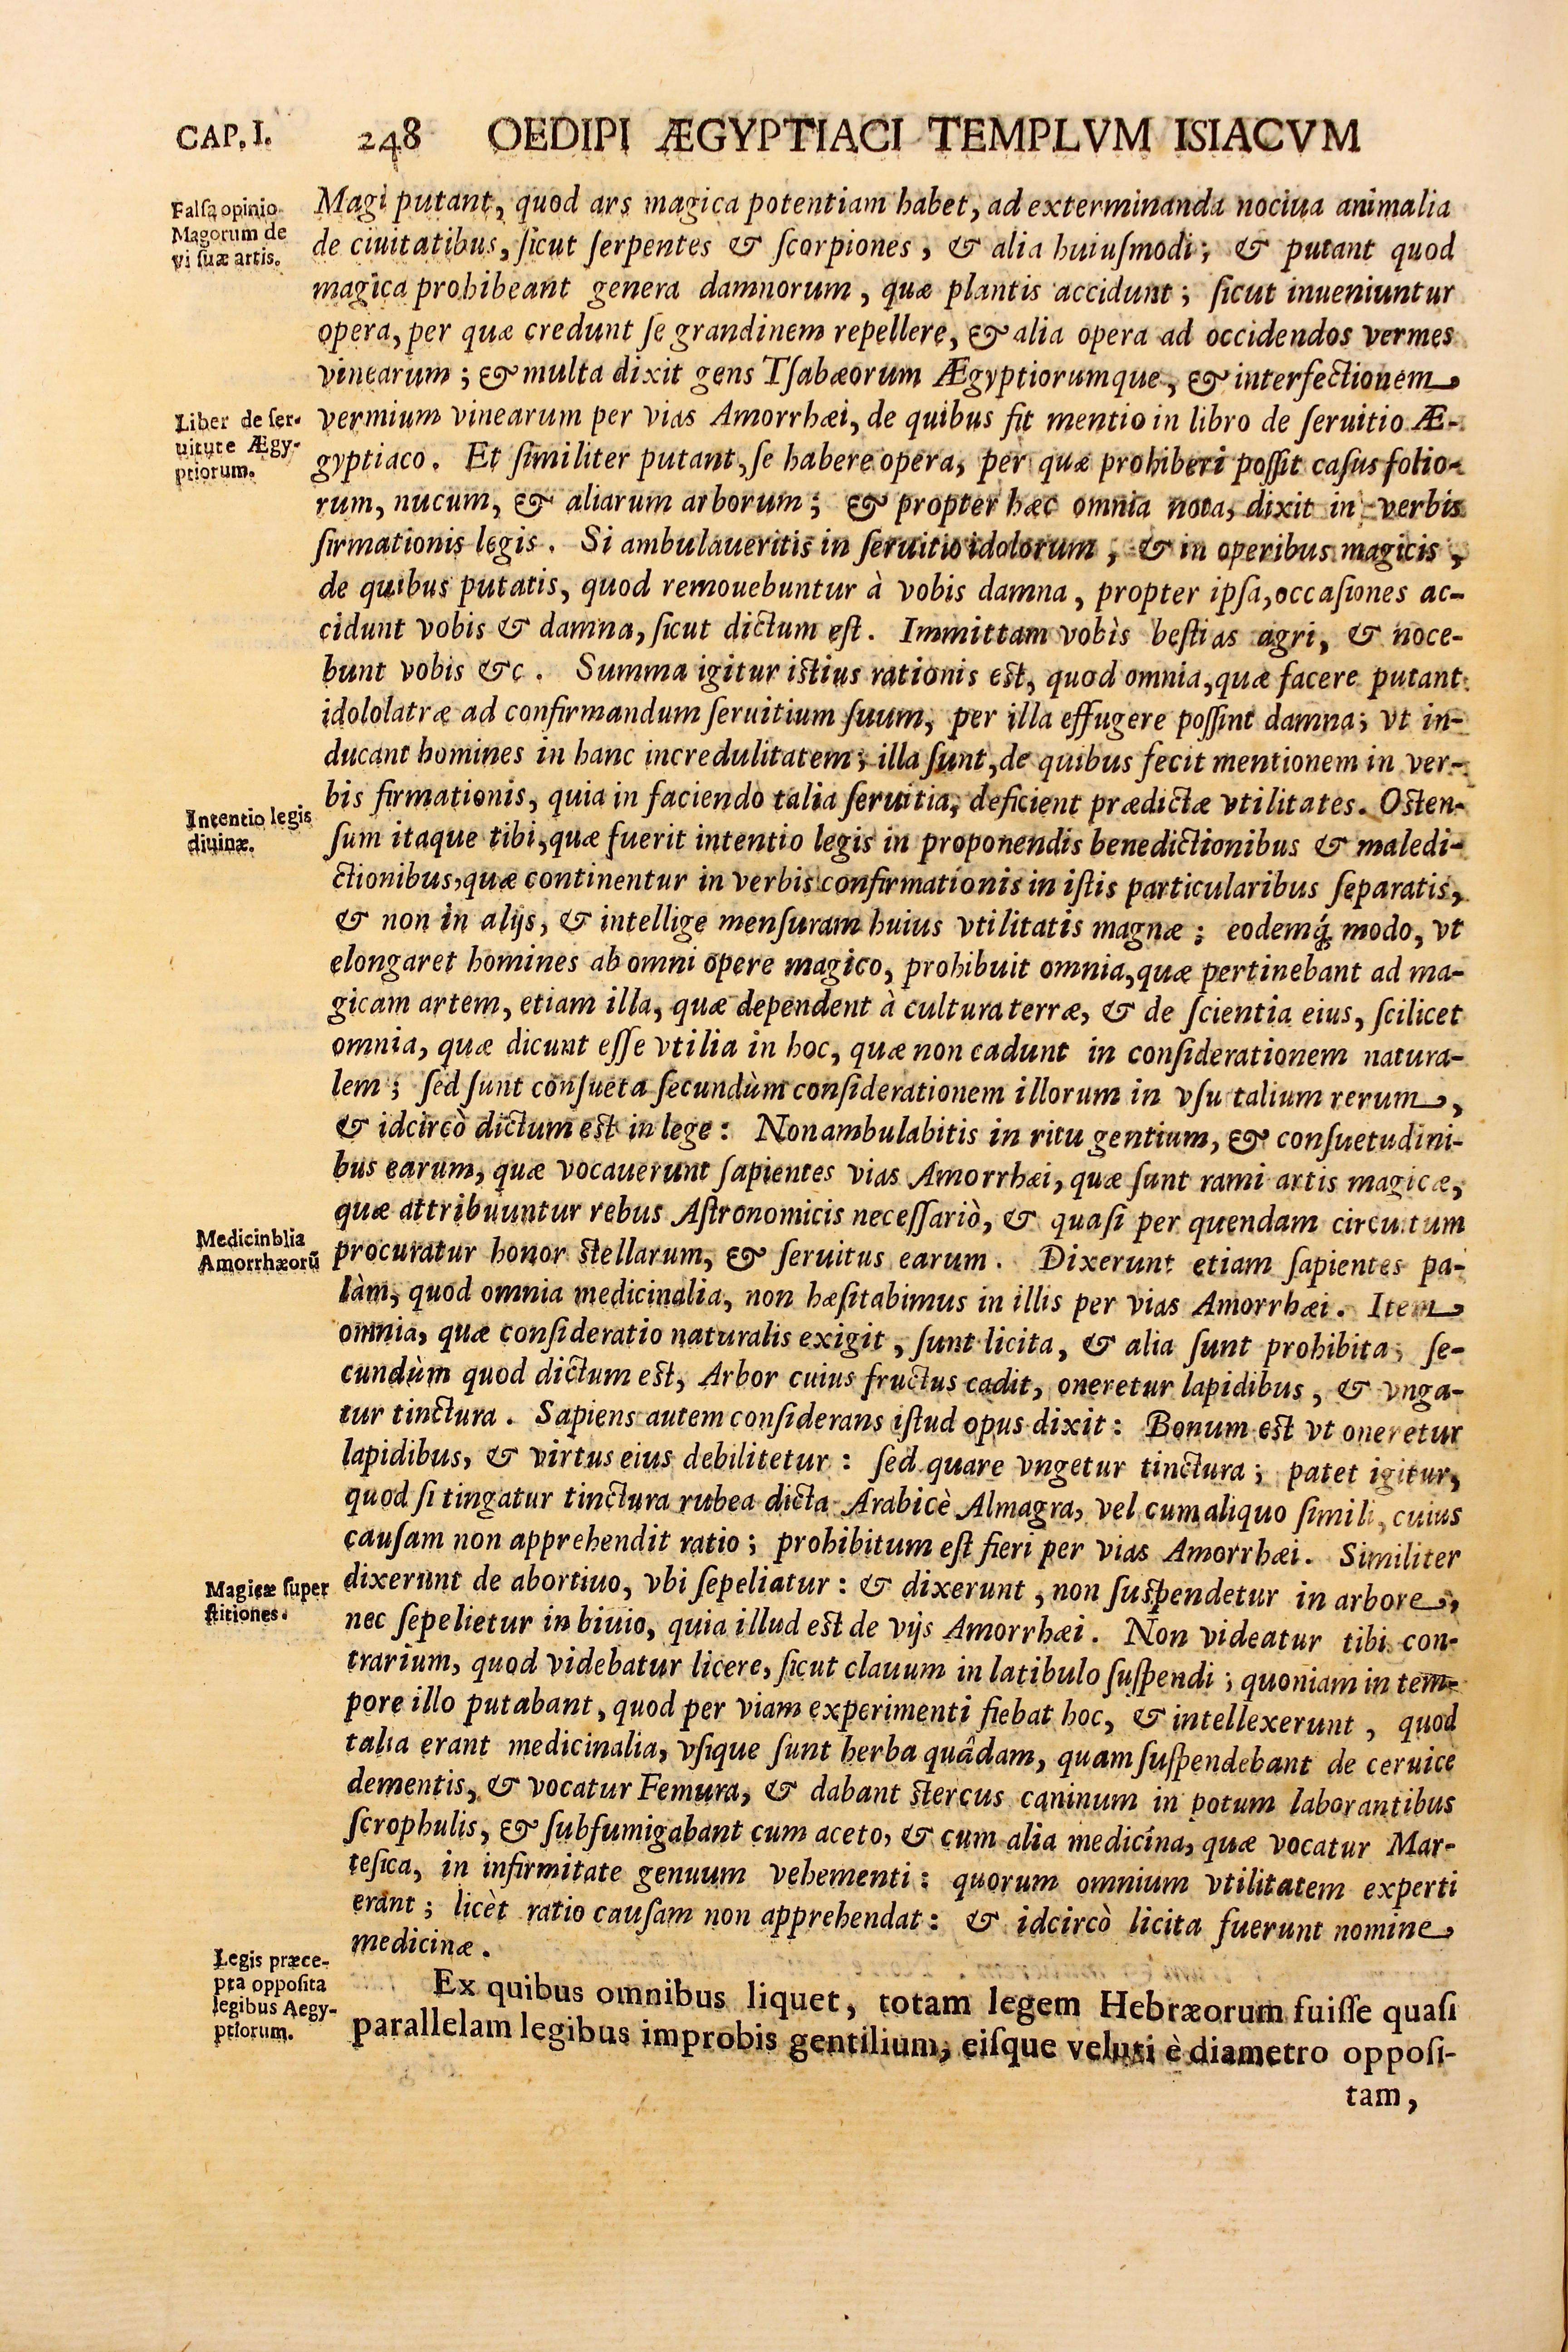 CAP. I. 248 OEDIPI ÆGYPTIACI TEMPLVM ISIACVM
Falſa opinio
Magorum de
vi ſuæ artis.
Magi putant, quod ars magica potentiam habet, ad exterminanda nociua animalia
de ciuitatibus, ſicut ſerpentes & ſcorpiones, & alia huiuſmodi; & putant quod
magica prohibeant genera damnorum, quæ plantis accidunt; ſicut inueniuntur
opera, per quæ credunt ſe grandinem repellere, & alia opera ad occidendos vermes
vinearum; & multa dixit gens Tſabæorum Ægyptiorumque, & interfectionem
Liber de ſer-
uitute Ægy-
ptiorum.
vermium vinearum per vias Amorrhæi, de quibus fit mentio in libro de ſeruitio Æ-
gyptiaco. Et ſimiliter putant, ſe habere opera, per quæ prohiberi poſſit caſus folio-
rum, nucum, & aliarum arborum; & propter hæc omnia nota, dixit in verbis
firmationis legis. Si ambulaueritis in ſeruitio idolorum, & in operibus magicis,
de quibus putatis, quod remouebuntur à vobis damna, propter ipſa, occaſiones ac-
cidunt vobis & damna, ſicut dictum eſt. Immittam vobis beſtias agri, & noce-
bunt vobis &c. Summa igitur iſtius rationis eſt, quod omnia, quæ facere putant
idololatræ ad confirmandum ſeruitium ſuum, per illa effugere poſſint damna; vt in-
ducant homines in hanc incredulitatem; illa ſunt, de quibus fecit mentionem in ver-
bis firmationis, quia in faciendo talia ſeruitia, deficient prædictæ vtilitates. Oſten-
Intentio legis
diuinæ.
ſum itaque tibi, quæ fuerit intentio legis in proponendis benedictionibus & maledi-
ctionibus, quæ continentur in verbis confirmationis in iſtis particularibus ſeparatis,
& non in alijs, & intellige menſuram huius vtilitatis magnæ; eodemq́; modo, vt
elongaret homines ab omni opere magico, prohibuit omnia, quæ pertinebant ad ma-
gicam artem, etiam illa, quæ dependent à cultura terræ, & de ſcientia eius, ſcilicet
omnia, quæ dicunt eſſe vtilia in hoc, quæ non cadunt in conſiderationem natura-
lem; ſed ſunt conſueta ſecundùm conſiderationem illorum in vſu talium rerum,
& idcircò dictum eſt in lege: Non ambulabitis in ritu gentium, & conſuetudini-
bus earum, quæ vocauerunt ſapientes vias Amorrhæi, quæ ſunt rami artis magicæ,
quæ attribuuntur rebus Aſtronomicis neceſſariò, & quaſi per quendam circuitum
Medicinblia
Amorrhæorũ
procuratur honor ſtellarum, & ſeruitus earum. Dixerunt etiam ſapientes pa-
làm, quod omnia medicinalia, non hæſitabimus in illis per vias Amorrhæi. Item
omnia, quæ conſideratio naturalis exigit, ſunt licita, & alia ſunt prohibita; ſe-
cundùm quod dictum eſt, Arbor cuius fructus cadit, oneretur lapidibus, & vnga-
tur tinctura. Sapiens autem conſiderans iſtud opus dixit: Bonum eſt vt oneretur
lapidibus, & virtus eius debilitetur: ſed quare vngetur tinctura; patet igitur,
quod ſi tingatur tinctura rubea dicta Arabicè Almagra, vel cum aliquo ſimili, cuius
cauſam non apprehendit ratio; prohibitum eſt fieri per vias Amorrhæi. Similiter
Magicæ ſuper
ſtitiones.
dixerunt de abortiuo, vbi ſepeliatur: & dixerunt, non ſuſpendetur in arbore,
nec ſepelietur in biuio, quia illud eſt de vijs Amorrhæi. Non videatur tibi con-
trarium, quod videbatur licere, ſicut clauum in latibulo ſuſpendi; quoniam in tem-
pore illo putabant, quod per viam experimenti fiebat hoc, & intellexerunt, quod
talia erant medicinalia, vſique ſunt herba quâdam, quam ſuſpendebant de ceruice
dementis, & vocatur Femura, & dabant ſtercus caninum in potum laborantibus
ſcrophulis, & ſubfumigabant cum aceto, & cum alia medicina, quæ vocatur Mar-
teſica, in infirmitate genuum vehementi: quorum omnium vtilitatem experti
erant; licèt ratio cauſam non apprehendat: & idcircò licita fuerunt nomine
medicinæ.
Legis præce-
pta oppoſita
legibus Aegy-
ptiorum.
Ex quibus omnibus liquet, totam legem Hebræorum fuiſſe quaſi
parallelam legibus improbis gentilium, eiſque veluti è diametro oppoſi-
tam,